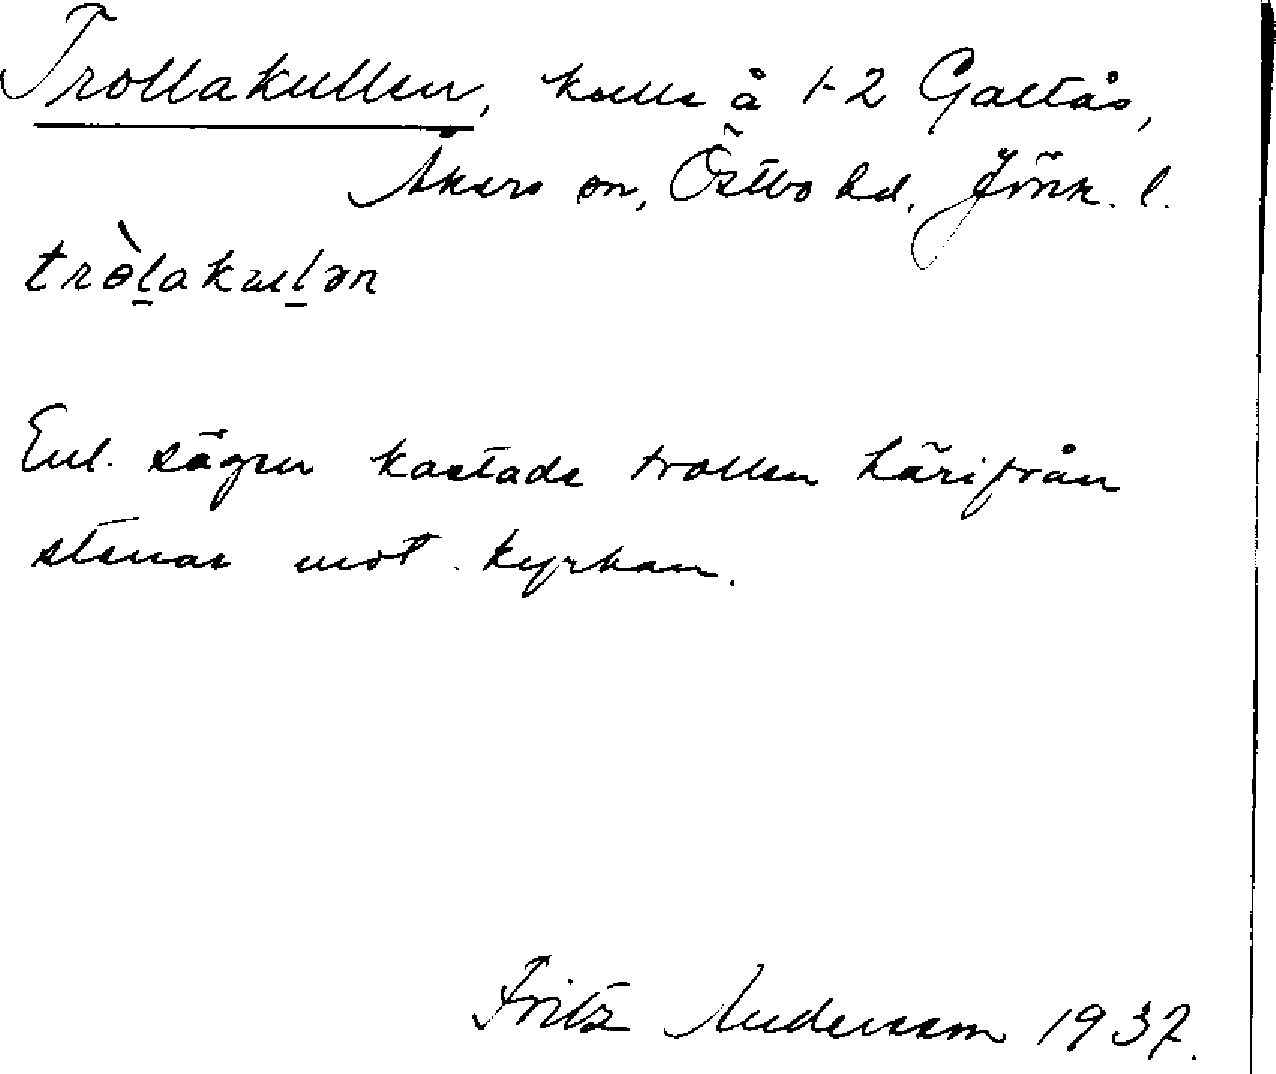 Trollakullen, kulle å 1-2 Galtås,
Åkers sn, Östbo hd, Jönk. l.
tròl̲akul̲ən
Enl. sägnen kastade trollen härifrån
stenar mot kyrkan.
Fritz Andersson 1937.